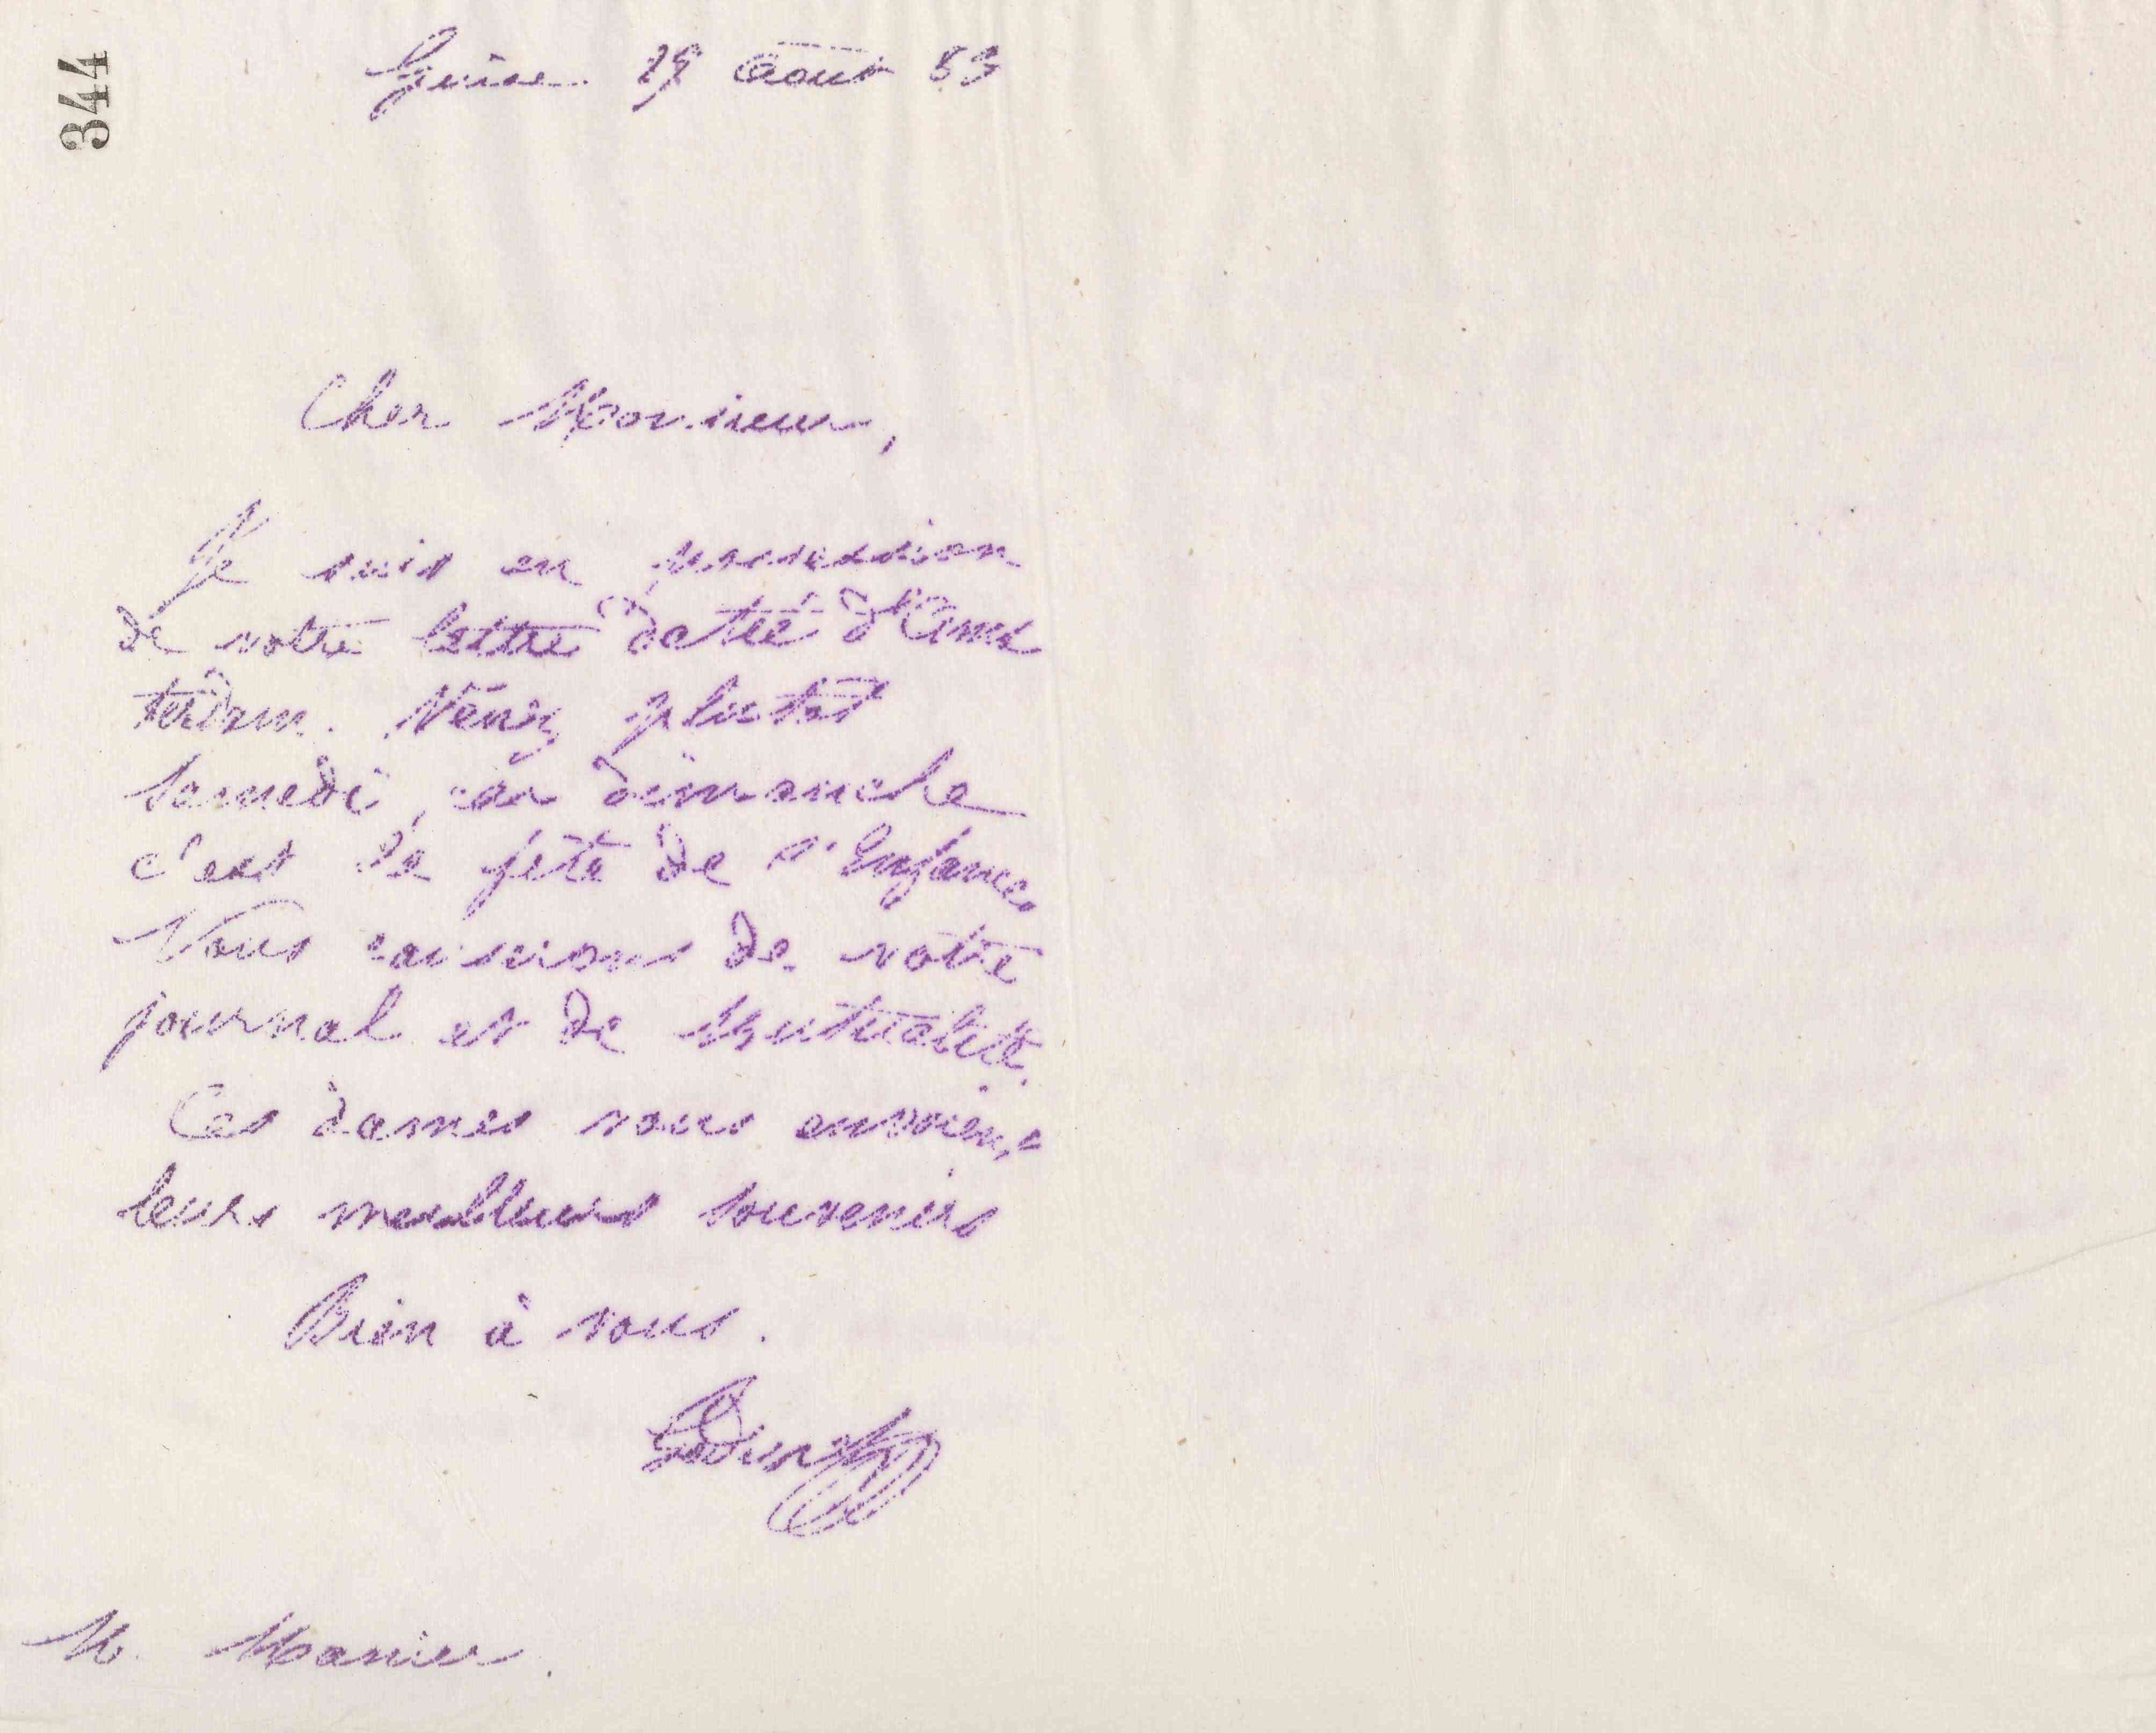 344
Guise 29 août 83
Cher Monsieur,
Je suis en possession
de votre lettre datée d'Ams
terdam. Venez plutôt
samedi, car dimanche
c'est la fête de l'Enfance
Nous causerons de votre
journal et de Mutualité.
Ces dames vous envoient
leurs meilleurs souvenirs
Bien à vous.
Godin
M. Manier.